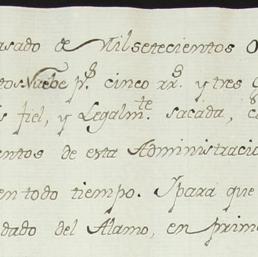 asado de Mil setecientos O
tos Nuebe p.s cinco rr.s y tres
fiel, y Legalm.te sacada,
entos de esta Administracio
en todo tiempo. Ypara que
dado del Alamo, en prim